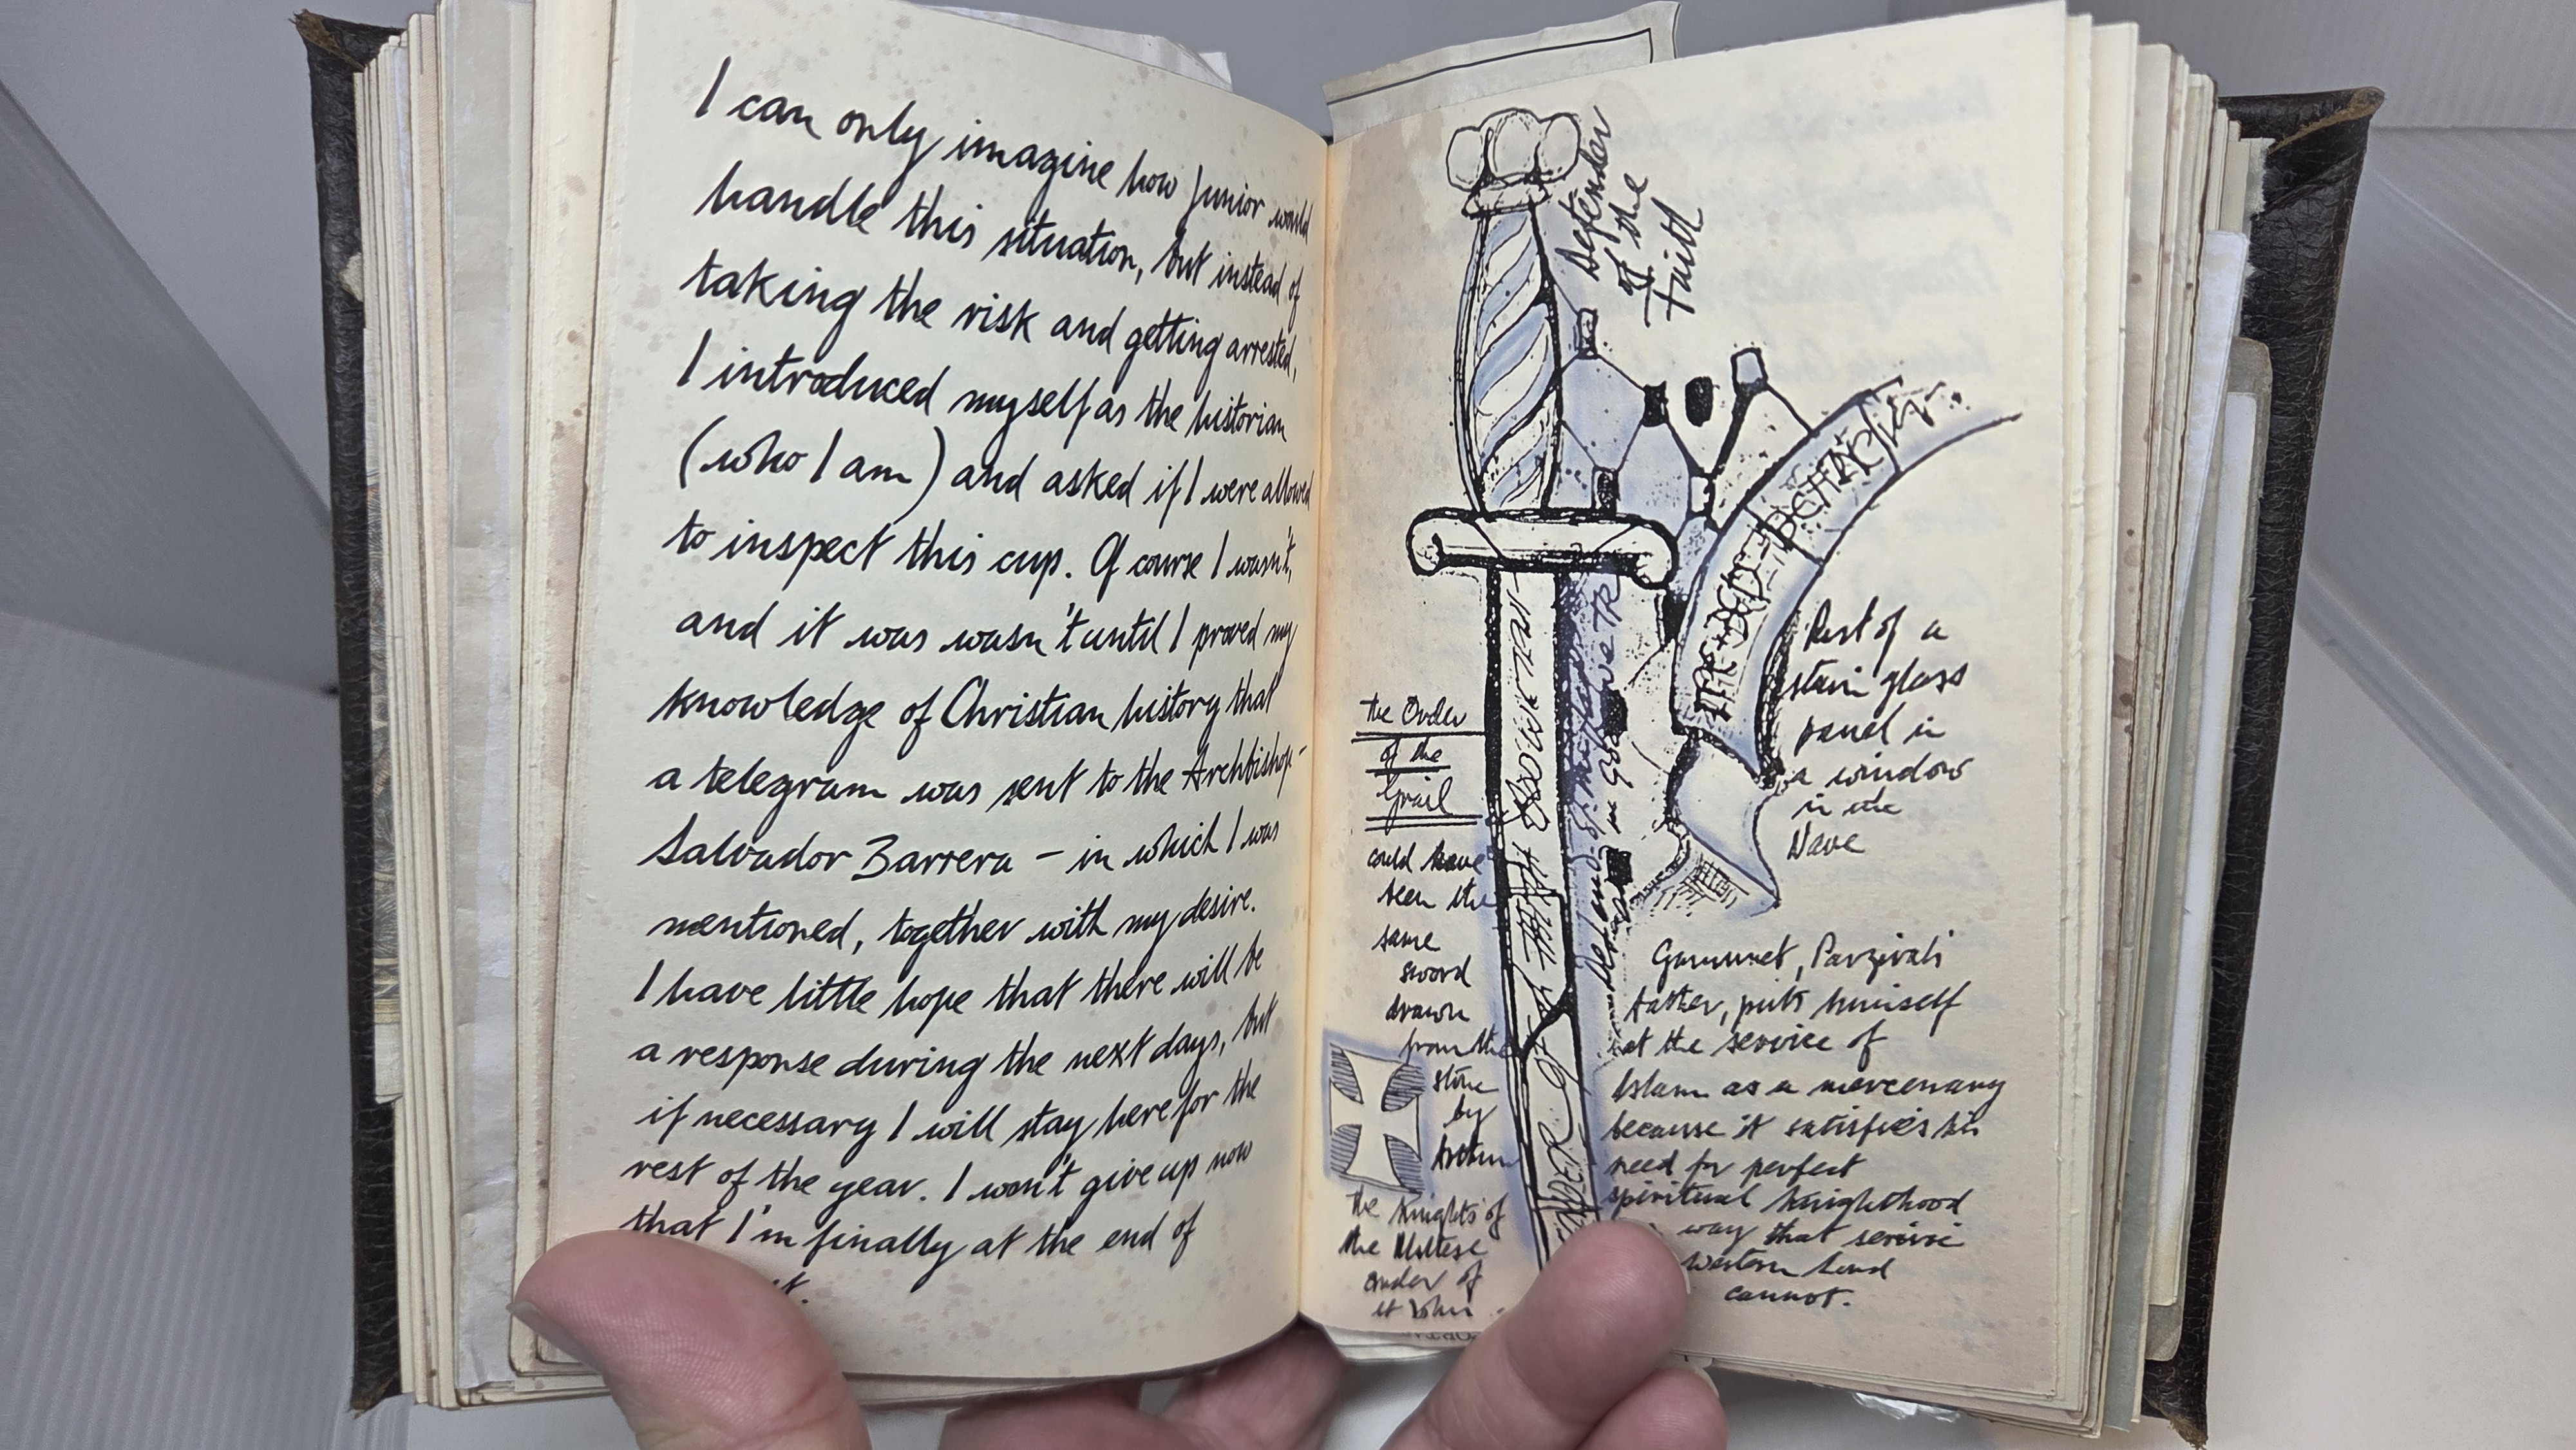 I can only imagine how Junior would
handle this situation, but instead of
taking the risk and getting arrested,
I introduced myself as the historian
(who I am) and asked if I were allowed
to inspect this cup. Of course I wasn't,
and it was wasn't until I proved my
knowledge of Christian history that
a telegram was sent to the Archbishop-
Salvador Barrera - in which I was
mentioned, together with my desire.
I have little hope that there will be
a response during the next days, but
if necessary I will stay here for the
rest of the year. I won't give up now
that I'm finally at the end of
Defender
of the
Faith
Rest of a
stain glass
panel in
a window
in the
Nave
the Order
of the
Grail
could have
been the
same
sword
drawn
from the
stone
by
Arthur
the Knights of
the Maltese
order of
st John
Gammuret, Parzival's
father, puts himself
at the service of
Islam as a mercenary
because it satisfies his
need for perfect
spiritual knighthood
way that service
Western Lord
cannot.